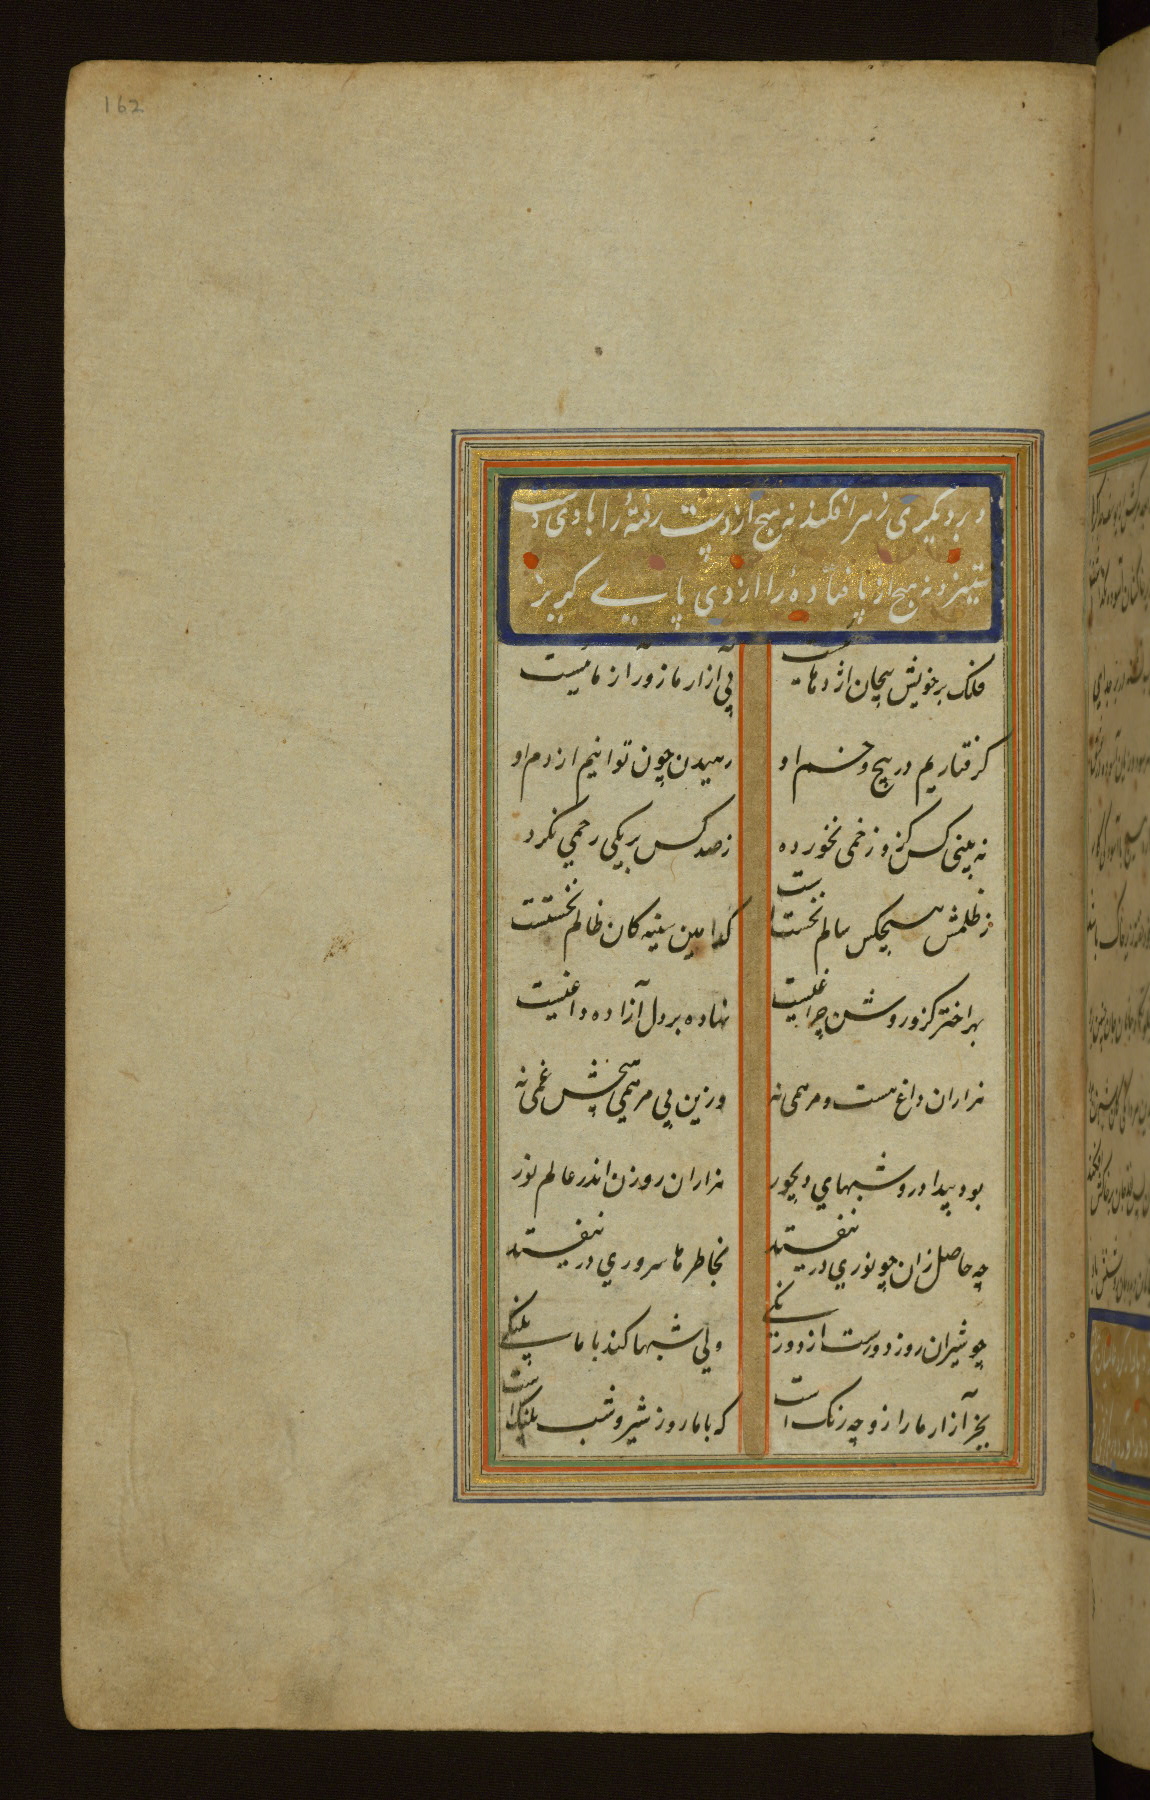 162
و بردیگری زهر افکند نه هیچ از دست رفتهٔ را با وی دست
ستیز و نه هیچ از پا فتادهٔ را از وی پای گریز
فلک بر خویش پیچان اژدهائیست پی آزار ما زورآزمائیست
گرفتاریم در پیچ و خم او رهیدن چون توانیم از دم او
نه بینی کس کزو زخمی نخورده ز صد کس بر یکی رحمی نکرد
ز ظلمش هیچکس سالم نخستست کدامین سینه کان ظالم نخستست
بهر اختر کزو روشن چراغیست نهاده بر دل آزاده داغیست
هزاران داغ هست و مرهمی نه وزین بی مرهمی هیچش غمی نه
بود پیدا درو شبهای دیجور هزاران روزن اندر عالم نور
چه حاصل زان چو نوری در نیفتد بخاطرها سروری در نیفتد
چو شیران روز دورست از دورنگی ولی شبها کند با ما پلنگی
بجز آزار ما را زو چه رنگ است که با ما روز شیر و شب پلنگ است